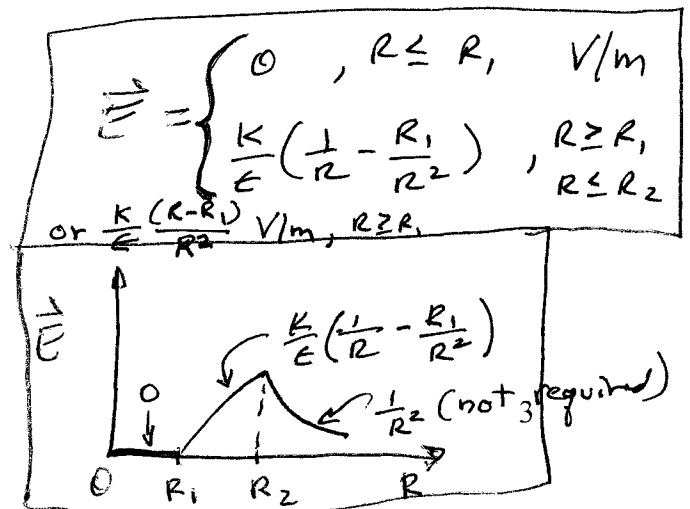 E⃗ = { 0 , R ≤ R₁ V/m
K/ε (1/R - R₁/R²) , R ≥ R₁
R ≤ R₂
or K/ε (R-R₁)/R² V/m, R ≥ R₁
E⃗
K/ε (1/R - R₁/R²)
0
1/R² (not required)
3
0 R₁ R₂ R